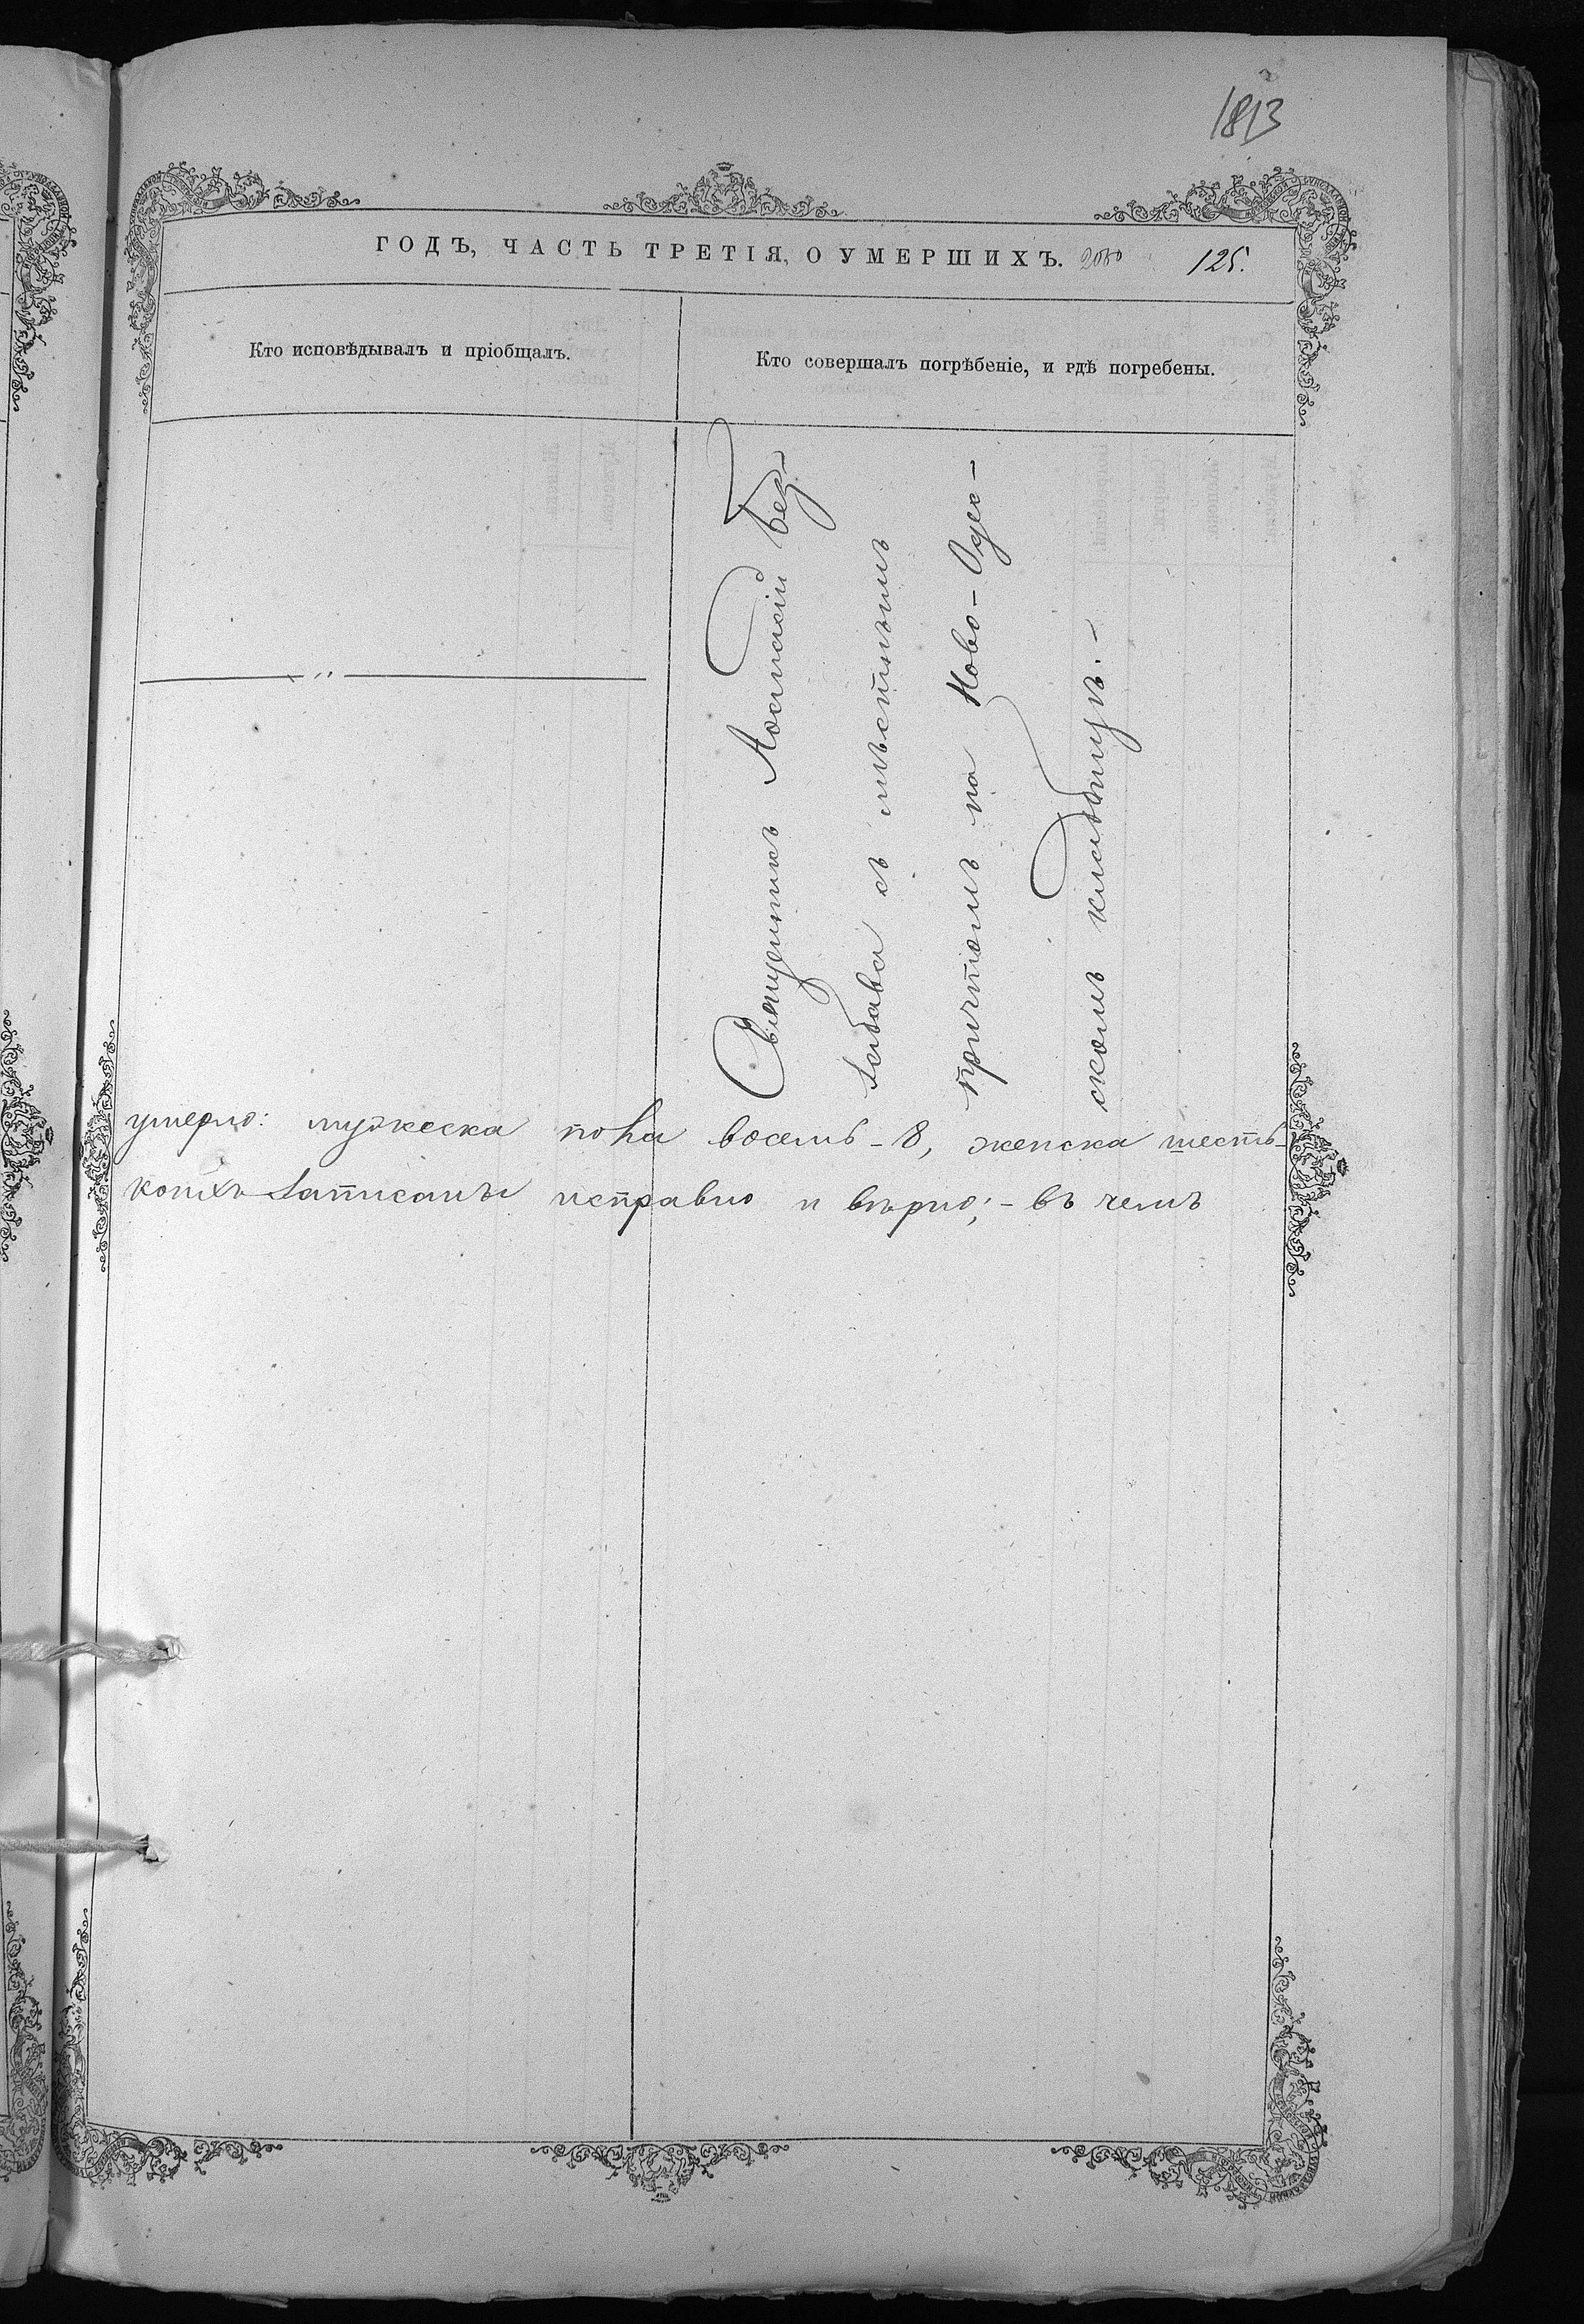 1813
ГОДЪ, ЧАСТЬ ТРЕТІЯ, О УМЕРШИХЪ. 125.
Кто исповѣдывалъ и пріобщалъ.
Кто совершалъ погрѣбеніе, и гдѣ погребены.
Священникъ Аѳанасій Без-
забава съ мѣстнымъ
причтомъ на Ново-Одес-
скомъ кладбищѣ.-
умерло: мужеска пола восемь-8, женска шесть-
копіяхъ записаны исправно и вѣрно;- въ чемъ